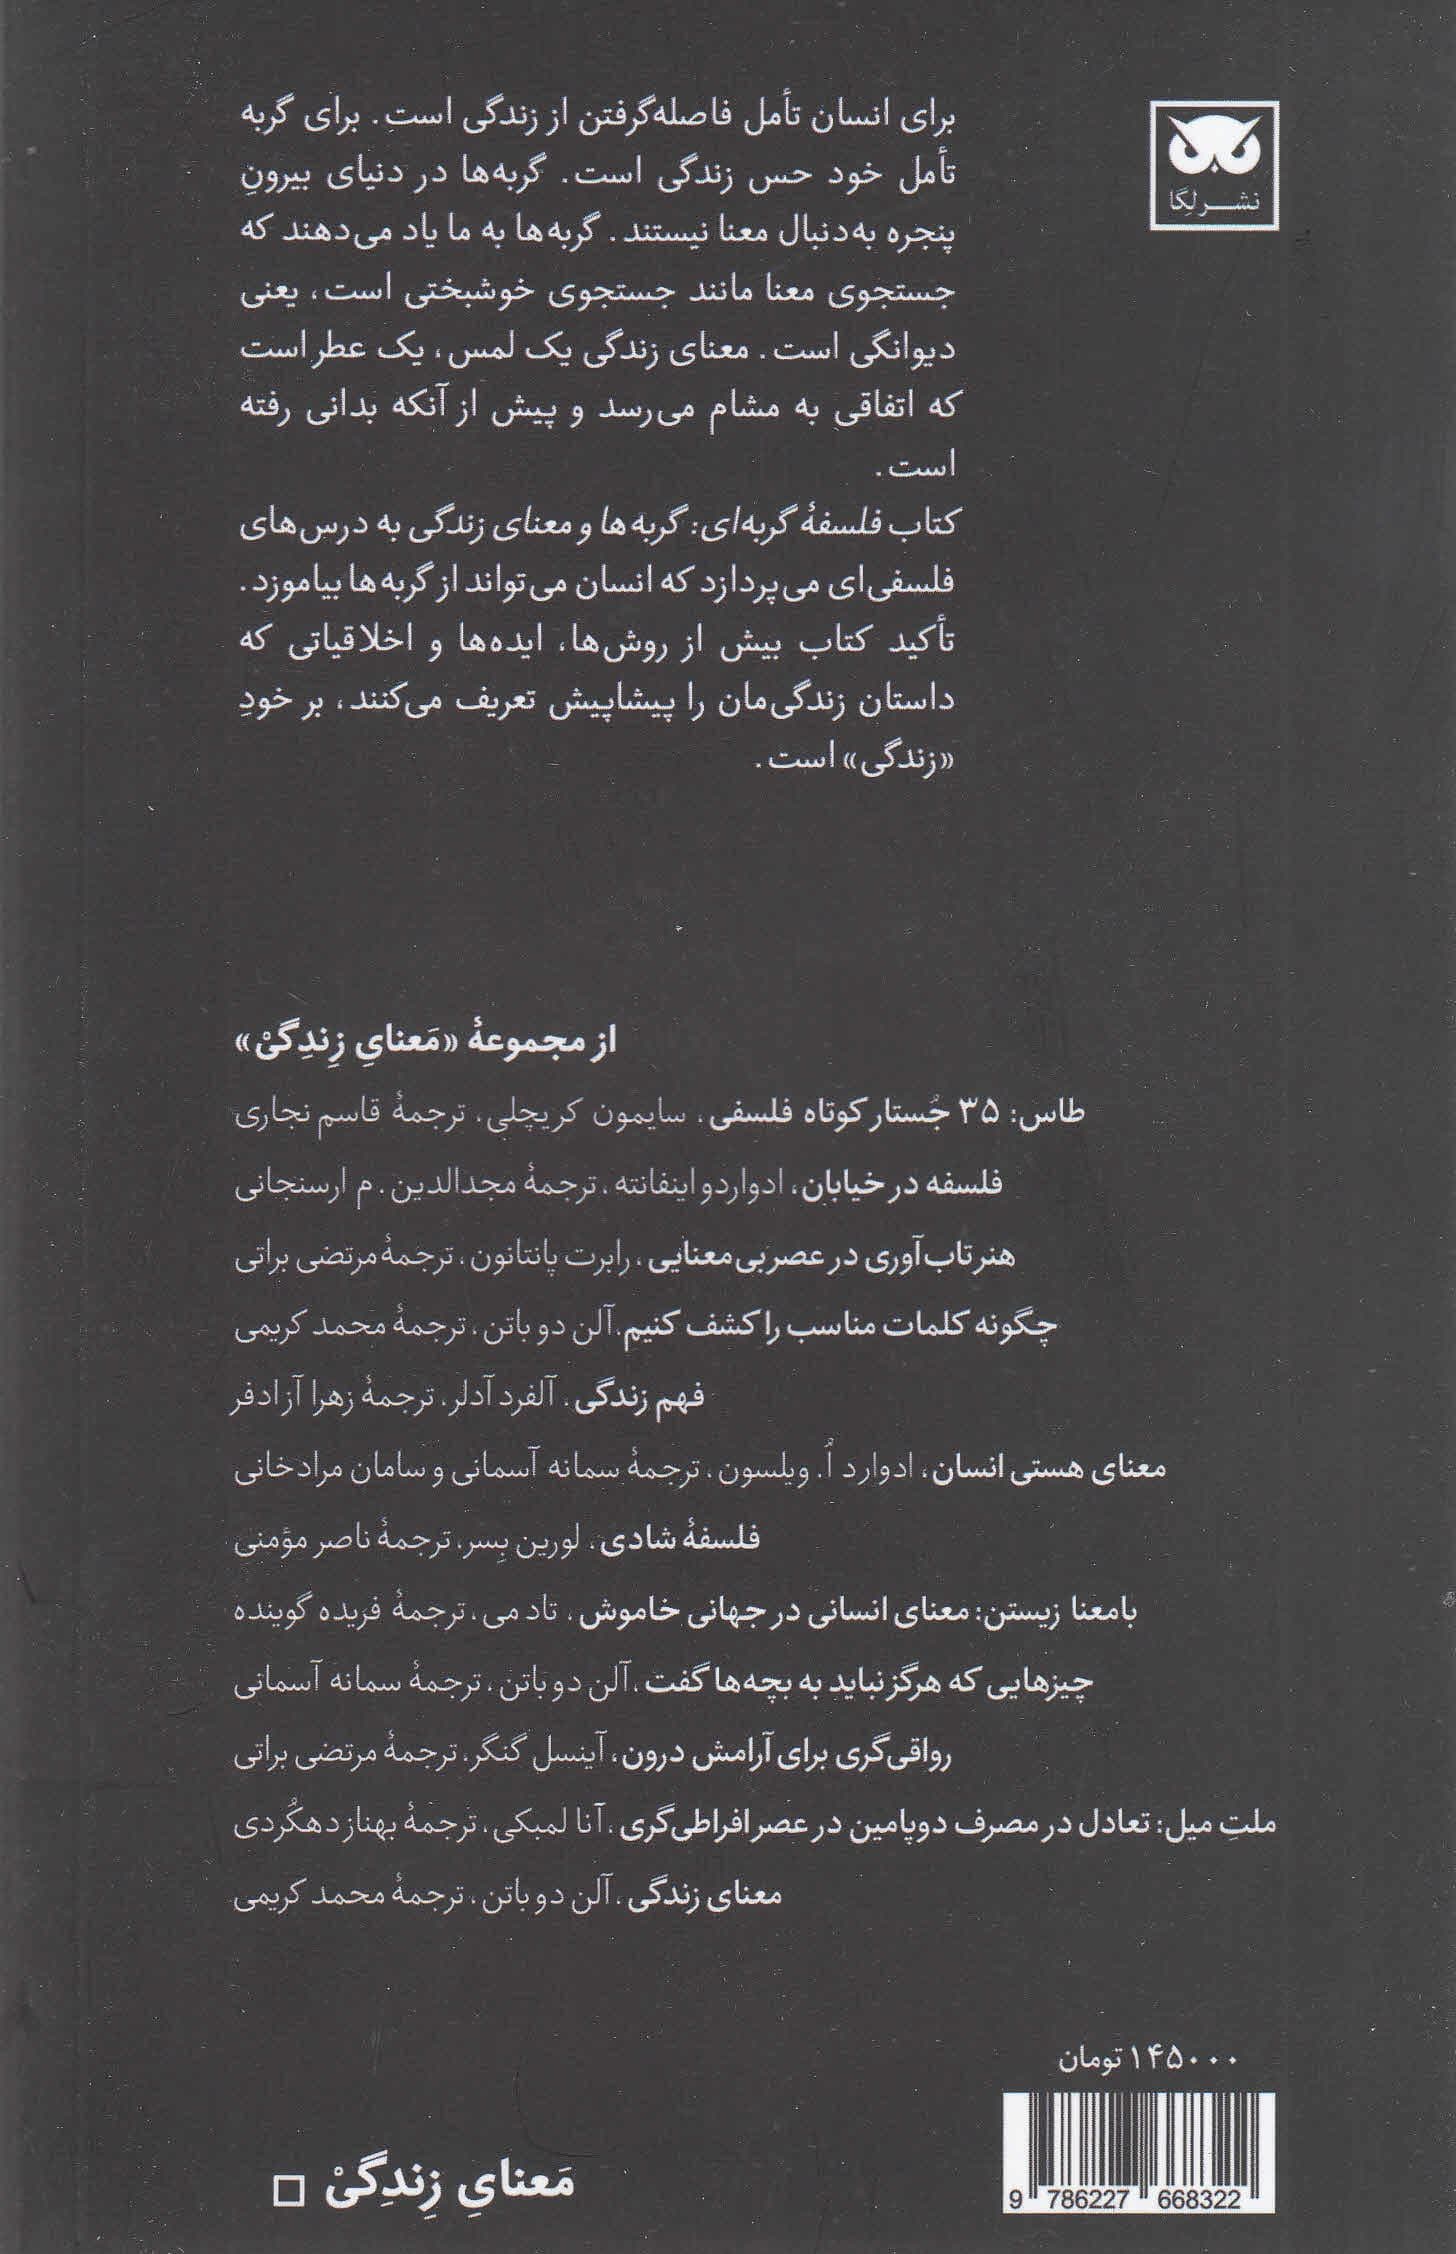 نشر لگا
برای انسان تأمل فاصله‌گرفتن از زندگی است. برای گربه
تأمل خود حس زندگی است. گربه‌ها در دنیای بیرونِ
پنجره به‌دنبال معنا نیستند. گربه‌ها به ما یاد می‌دهند که
جستجوی معنا مانند جستجوی خوشبختی است، یعنی
دیوانگی است. معنای زندگی یک لمس، یک عطر است
که اتفاقی به مشام می‌رسد و پیش از آنکه بدانی رفته
است.
کتاب فلسفۀ گربه‌ای: گربه‌ها و معنای زندگی به درس‌های
فلسفی‌ای می‌پردازد که انسان می‌تواند از گربه‌ها بیاموزد.
تأکید کتاب بیش از روش‌ها، ایده‌ها و اخلاقیاتی که
داستان زندگی‌مان را پیشاپیش تعریف می‌کنند، بر خودِ
«زندگی» است.
از مجموعۀ «مَعنایِ زِندِگیْ»
طاس: ۳۵ جُستار کوتاه فلسفی، سایمون کریچلی، ترجمۀ قاسم نجاری
فلسفه در خیابان، ادواردو اینفانته، ترجمۀ مجدالدین. م ارسنجانی
هنر تاب‌آوری در عصر بی‌معنایی، رابرت پانتانون، ترجمۀ مرتضی براتی
چگونه کلمات مناسب را کشف کنیم، آلن دو باتن، ترجمۀ محمد کریمی
فهم زندگی، آلفرد آدلر، ترجمۀ زهرا آزادفر
معنای هستی انسان، ادوارد اُ. ویلسون، ترجمۀ سمانه آسمانی و سامان مرادخانی
فلسفۀ شادی، لورین بِسر، ترجمۀ ناصر مؤمنی
بامعنا زیستن: معنای انسانی در جهانی خاموش، تاد می، ترجمۀ فریده گوینده
چیزهایی که هرگز نباید به بچه‌ها گفت، آلن دو باتن، ترجمۀ سمانه آسمانی
رواقی‌گری برای آرامش درون، آینسل گنگر، ترجمۀ مرتضی براتی
ملتِ میل: تعادل در مصرف دوپامین در عصر افراطی‌گری، آنا لمبکی، ترجمۀ بهناز دهکُردی
معنای زندگی، آلن دو باتن، ترجمۀ محمد کریمی
۱۴۵۰۰۰ تومان
9 786227 668322
مَعنایِ زِندِگیْ